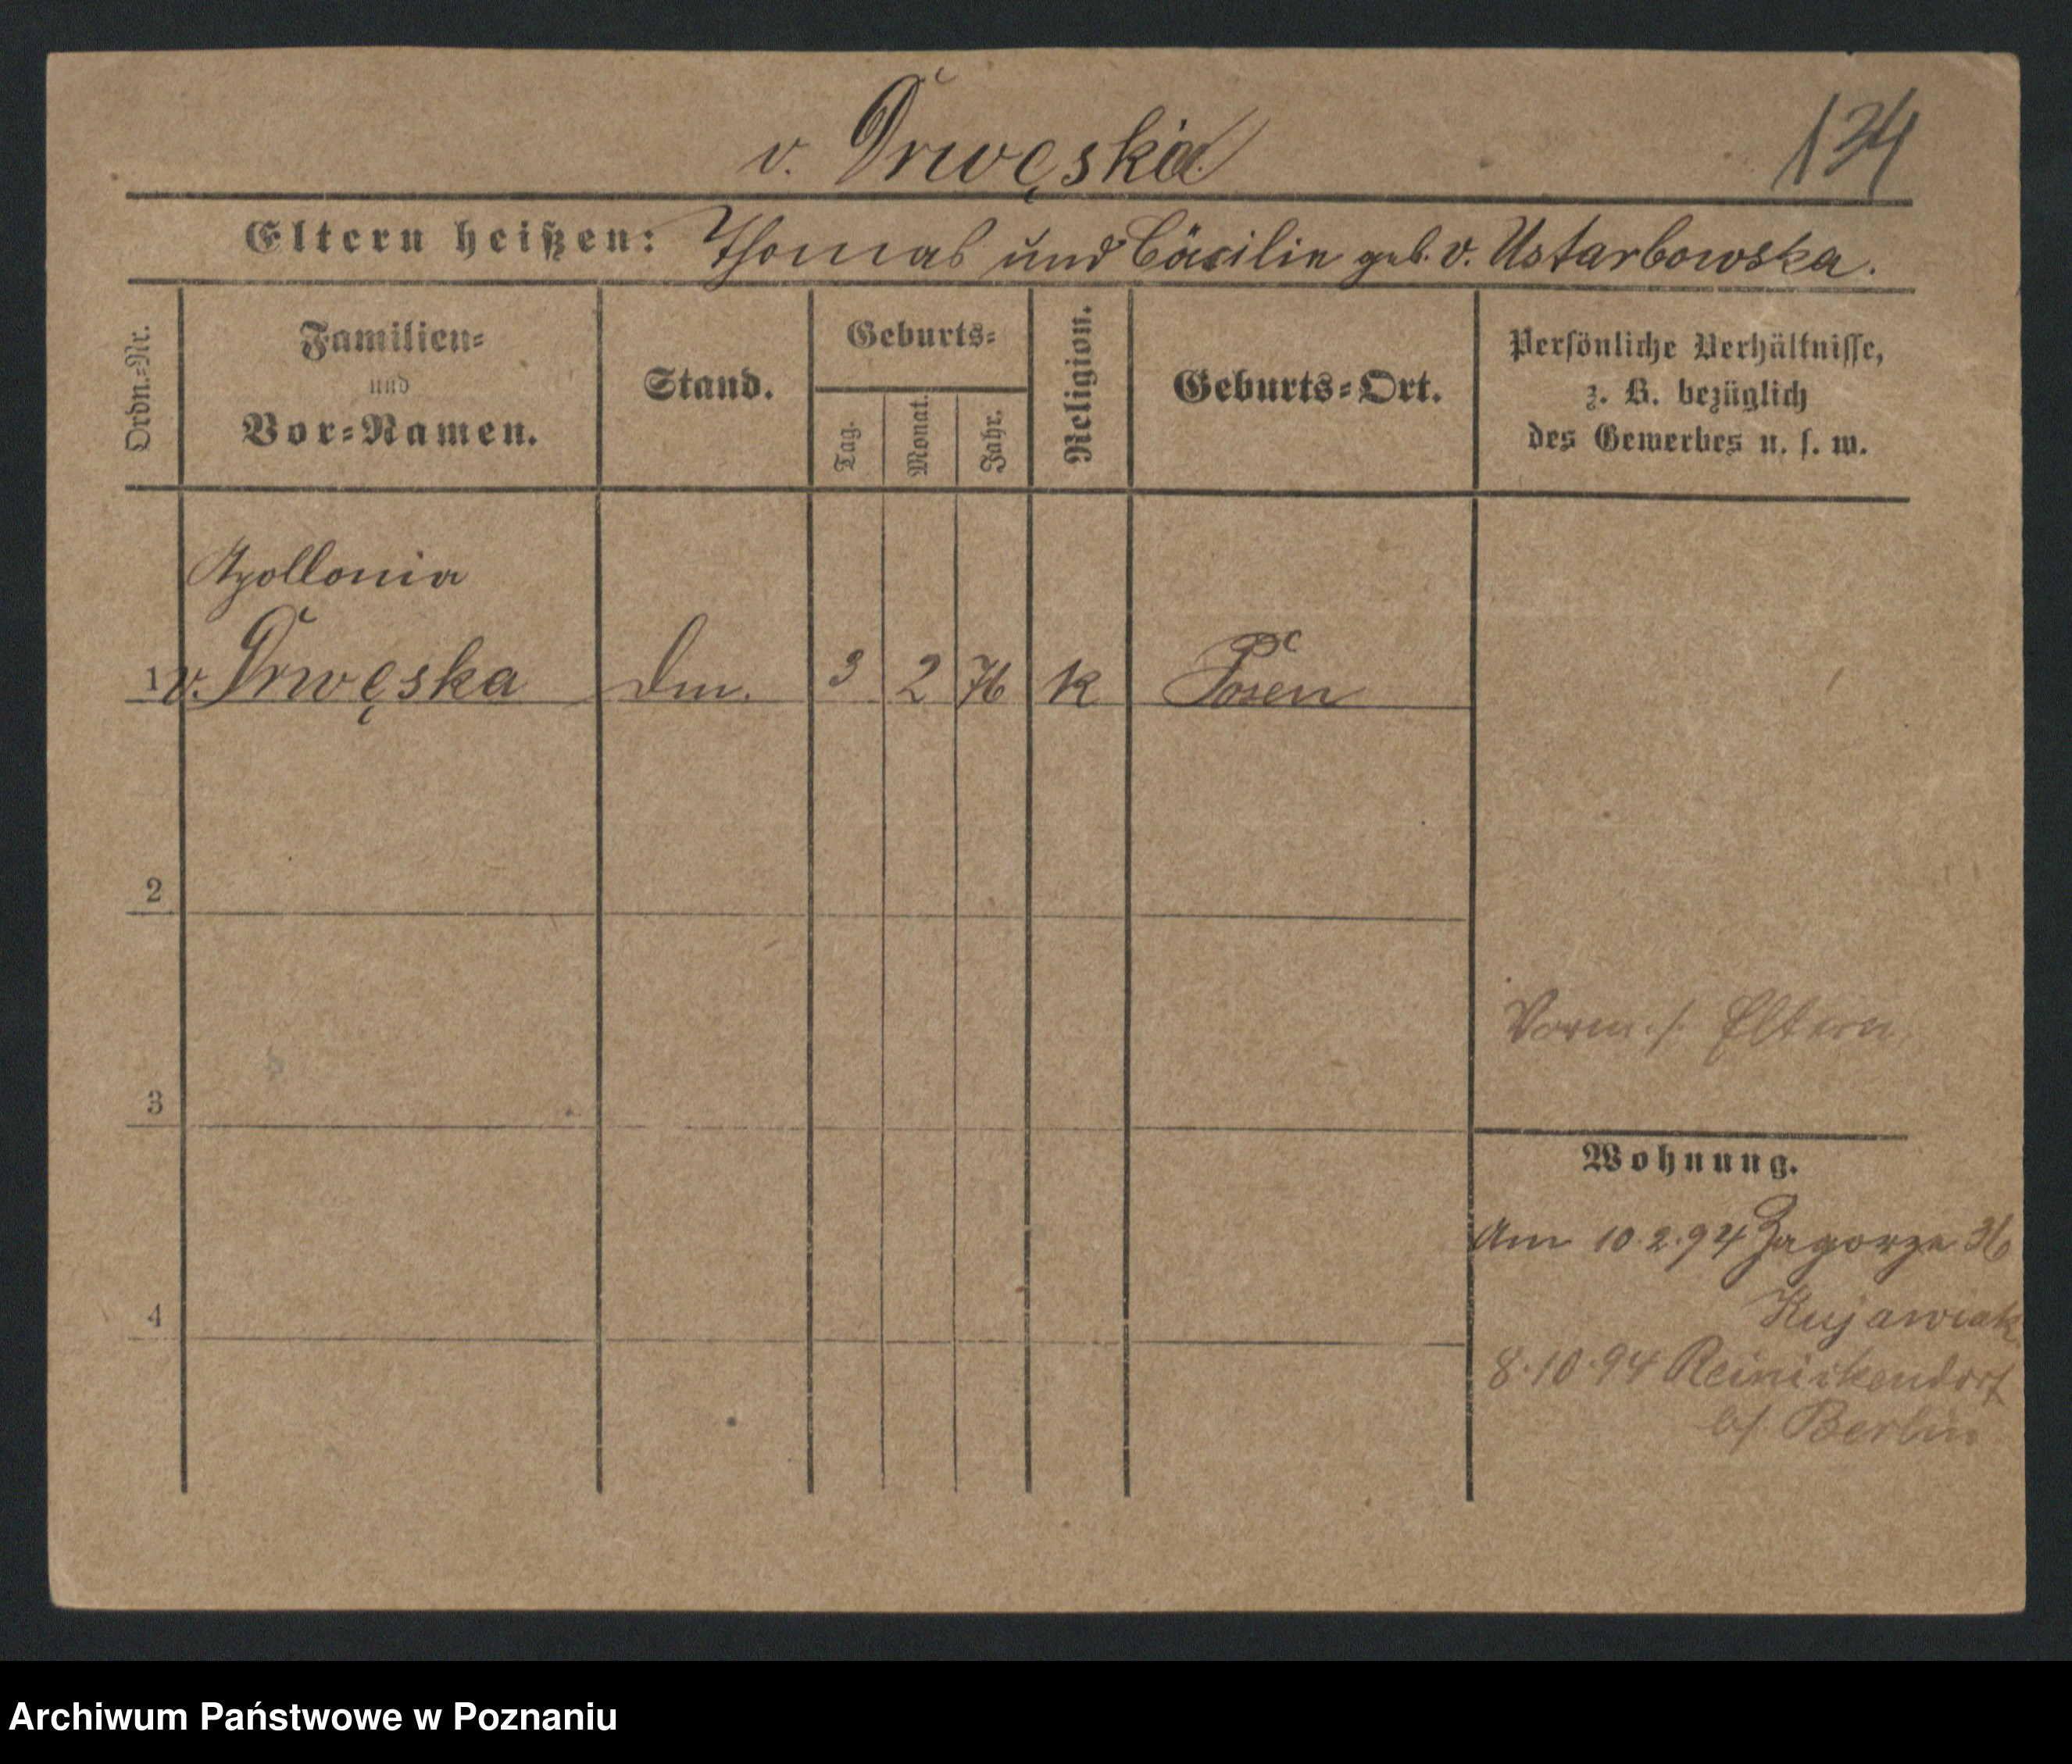 v. Drwęska
134
Eltern heißen: Thomas und Cäcilie geb. v. Ustarbowska.
Ordn.-Nr.
Familien-
und
Vor-Namen.
Stand.
Geburts-
Tag.
Monat.
Jahr.
Religion.
Geburts-Ort.
Persönliche Verhältnisse,
z. B. bezüglich
des Gewerbes u. s. w.
Apollonia
1 v. Drwęska Dm. 3 2 76 k Posen
2
3
4
Vorm. s. Eltern
Wohnung.
Am 10.2.94 Zagorze 3b
Kujawiak
8.10.94 Reinickendorf
b/ Berlin
Archiwum Państwowe w Poznaniu